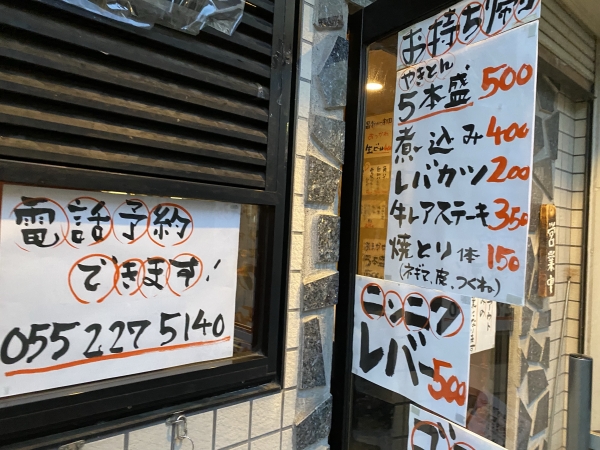 電話予約
できます!
055 227 5140
お持ち帰
やきとん
5本盛 500
煮込み 400
レバカツ 200
牛レアステーキ 350
焼とり 1本 150
(ネギマ、皮、つくね)
ニンニク
レバー 500
営業中